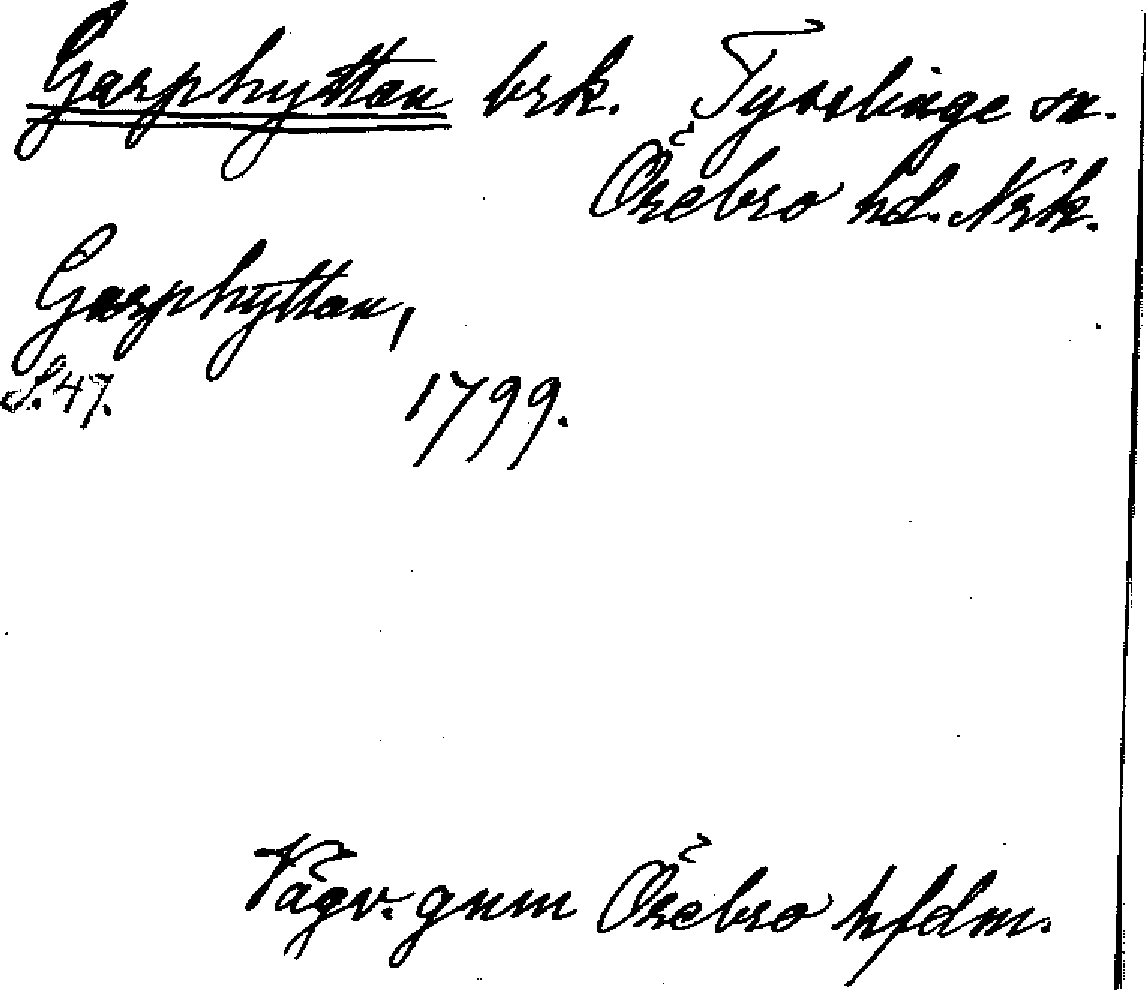 Garphyttan brk. Tysslinge sn.
Örebro hd. Nrk.
Garphyttan,
S. 47. 1799.
Vägv. gnm Örebro hfdm.